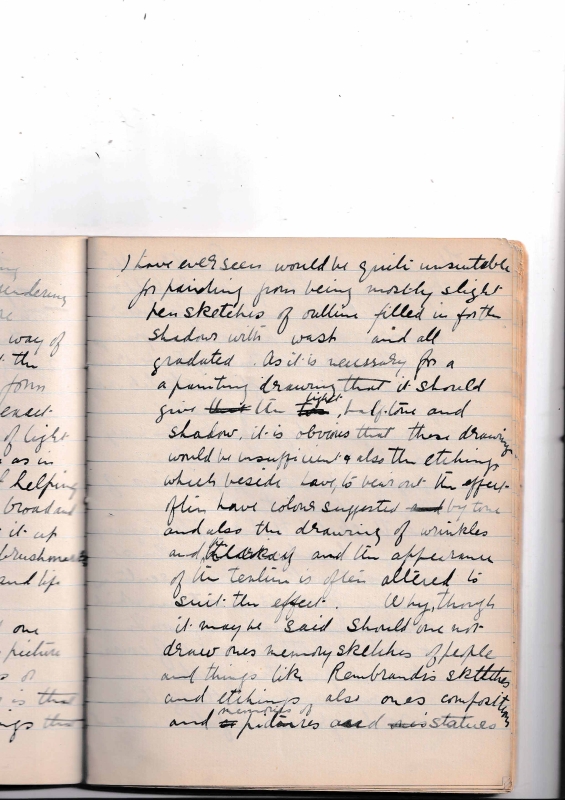 ng
rendering
re
way of
t the
form
exact
of light
as in
helping
broad and
it up
brushmarks
and life
one
picture
s or
is that
ngs the
I have ever seen would be quite unsuitable
for painting from being mostly slight
pen sketches of outline filled in for the
shadows with wash and all
graduated. As it is necessary for a
a painting drawing that it should
give that the light, half-tone and
shadow, it is obvious that these drawings
would be insufficient & also the etchings
which beside have, to bear out the effect
often have colour suggested and by tone
and also the drawing of wrinkles
and the and the appearance
of the texture is often altered to
suit the effect. Why, though
it may be said should one not
draw ones memory sketches of people
and things like Rembrandts sketches
and etchings also ones compositions
and memories of pictures and statues